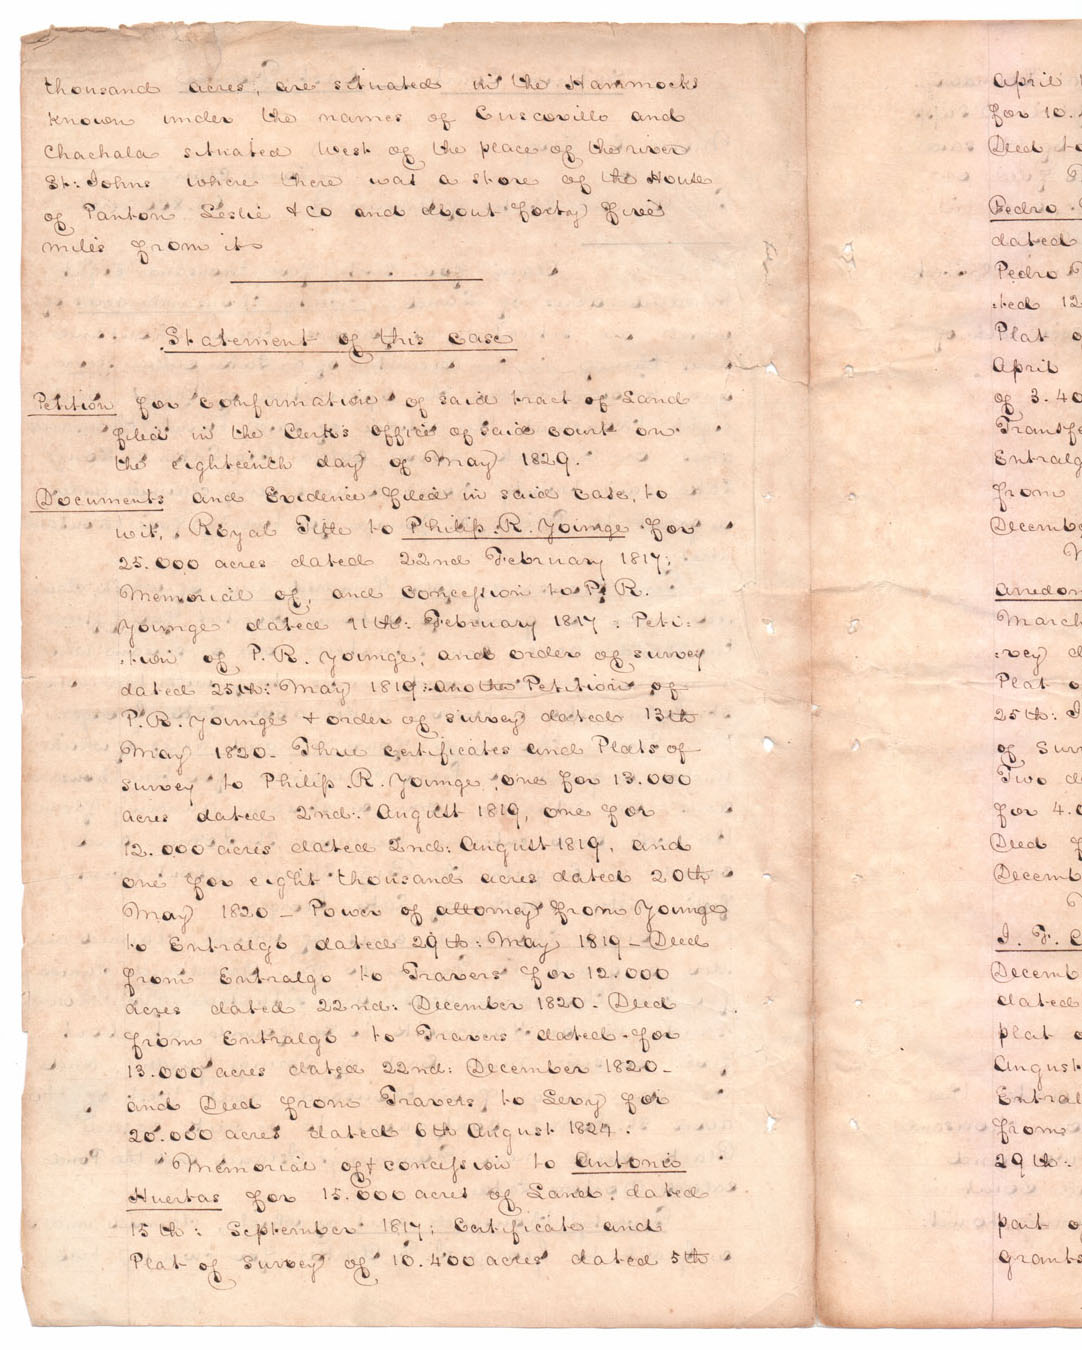 thousand acres, are situated in the Hammocks
known under the names of Cuscovillo and
Chachala situated West of the place of the river
St: Johns where there was a store of the House
of Panton Leslie & Co and about forty five
miles from it
Statement of this case
Petition for confirmation of said tract of Land
filed in the Clerk's office of said court on
the eighteenth day of May 1829.
Documents and Evidence filed in said case, to
wit, Royal Title to Philip. R. Younge for
25.000 acres dated 22nd February 1817;
Memorial of, and concession to P. R.
Younge dated 11th: February 1817; Peti:
:tion of P. R. Younge, and order of survey
dated 25th: May 1819: another Petition of
P. R. Younge & order of survey dated 13th
May 1820_ Three certificates and Plats of
survey to Philip .R. Younge, one for 13.000
acres dated 2nd: August 1819, one for
12.000 acres dated 2nd: August 1819, and
one for eight thousand acres dated 20th
May 1820 _ Power of attorney from Younge
to Entralgo dated 29th: May 1819 _ Deed
from Entralgo to Travers for 12.000
acres dated 22nd: December 1820_ Deed
from Entralgo to Travers dated for
13.000 acres dated 22nd: December 1820_
and Deed from Travers to Levy for
20.000 acres dated 6th August 1824.
Memorial of & concession to Antonio
Huertas for 15.000 acres of Land, dated
15th: September 1817; Certificate and
Plat of Survey of 10.400 acres dated 5th
April
for 10.
Deed to
Pedro
dated
Pedro
:ted 12
Plat o
April
of 3.40
Transfe
Entralg
from
Decembe
Arredon
March
:vey d
Plat o
25th: J
of Surv
Two d
for 4.0
Deed f
Decemb
J. F. C
Decemb
dated
plat o
August
Entral
from
29th.
part of
grants